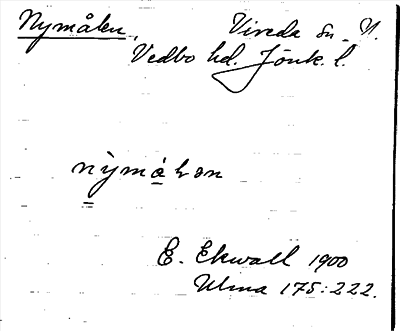 Nymålen, Vireda sn. N.
Vedbo hd. Jönk. l.
nỳmá̱ḷən
E. Ekwall 1900
Ulma 175:222.